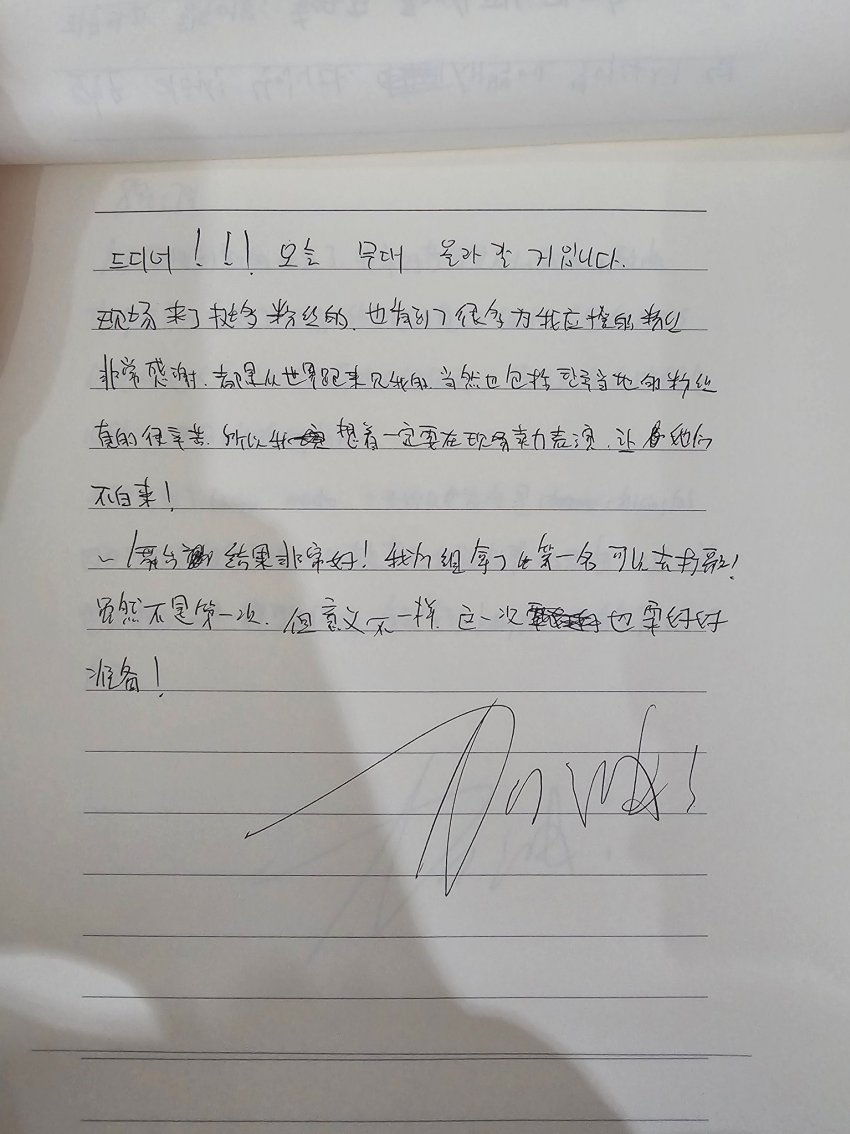 드디어!!! 오늘 무대 올라 갈 거입니다.
现场来了挺多粉丝的. 也看到了很多为我应援的粉丝
非常感谢. 都是从世界跑来见我的. 当然也包括한국当地的粉丝
真的很辛苦. 所以我 想着一定要在现场卖力表演. 让 他们
不白来!
~ 舞台 结果非常好! 我们组拿了 第一名 可以去打歌!
虽然不是第一次. 但意义不一样. 这一次 也要好好
准备!